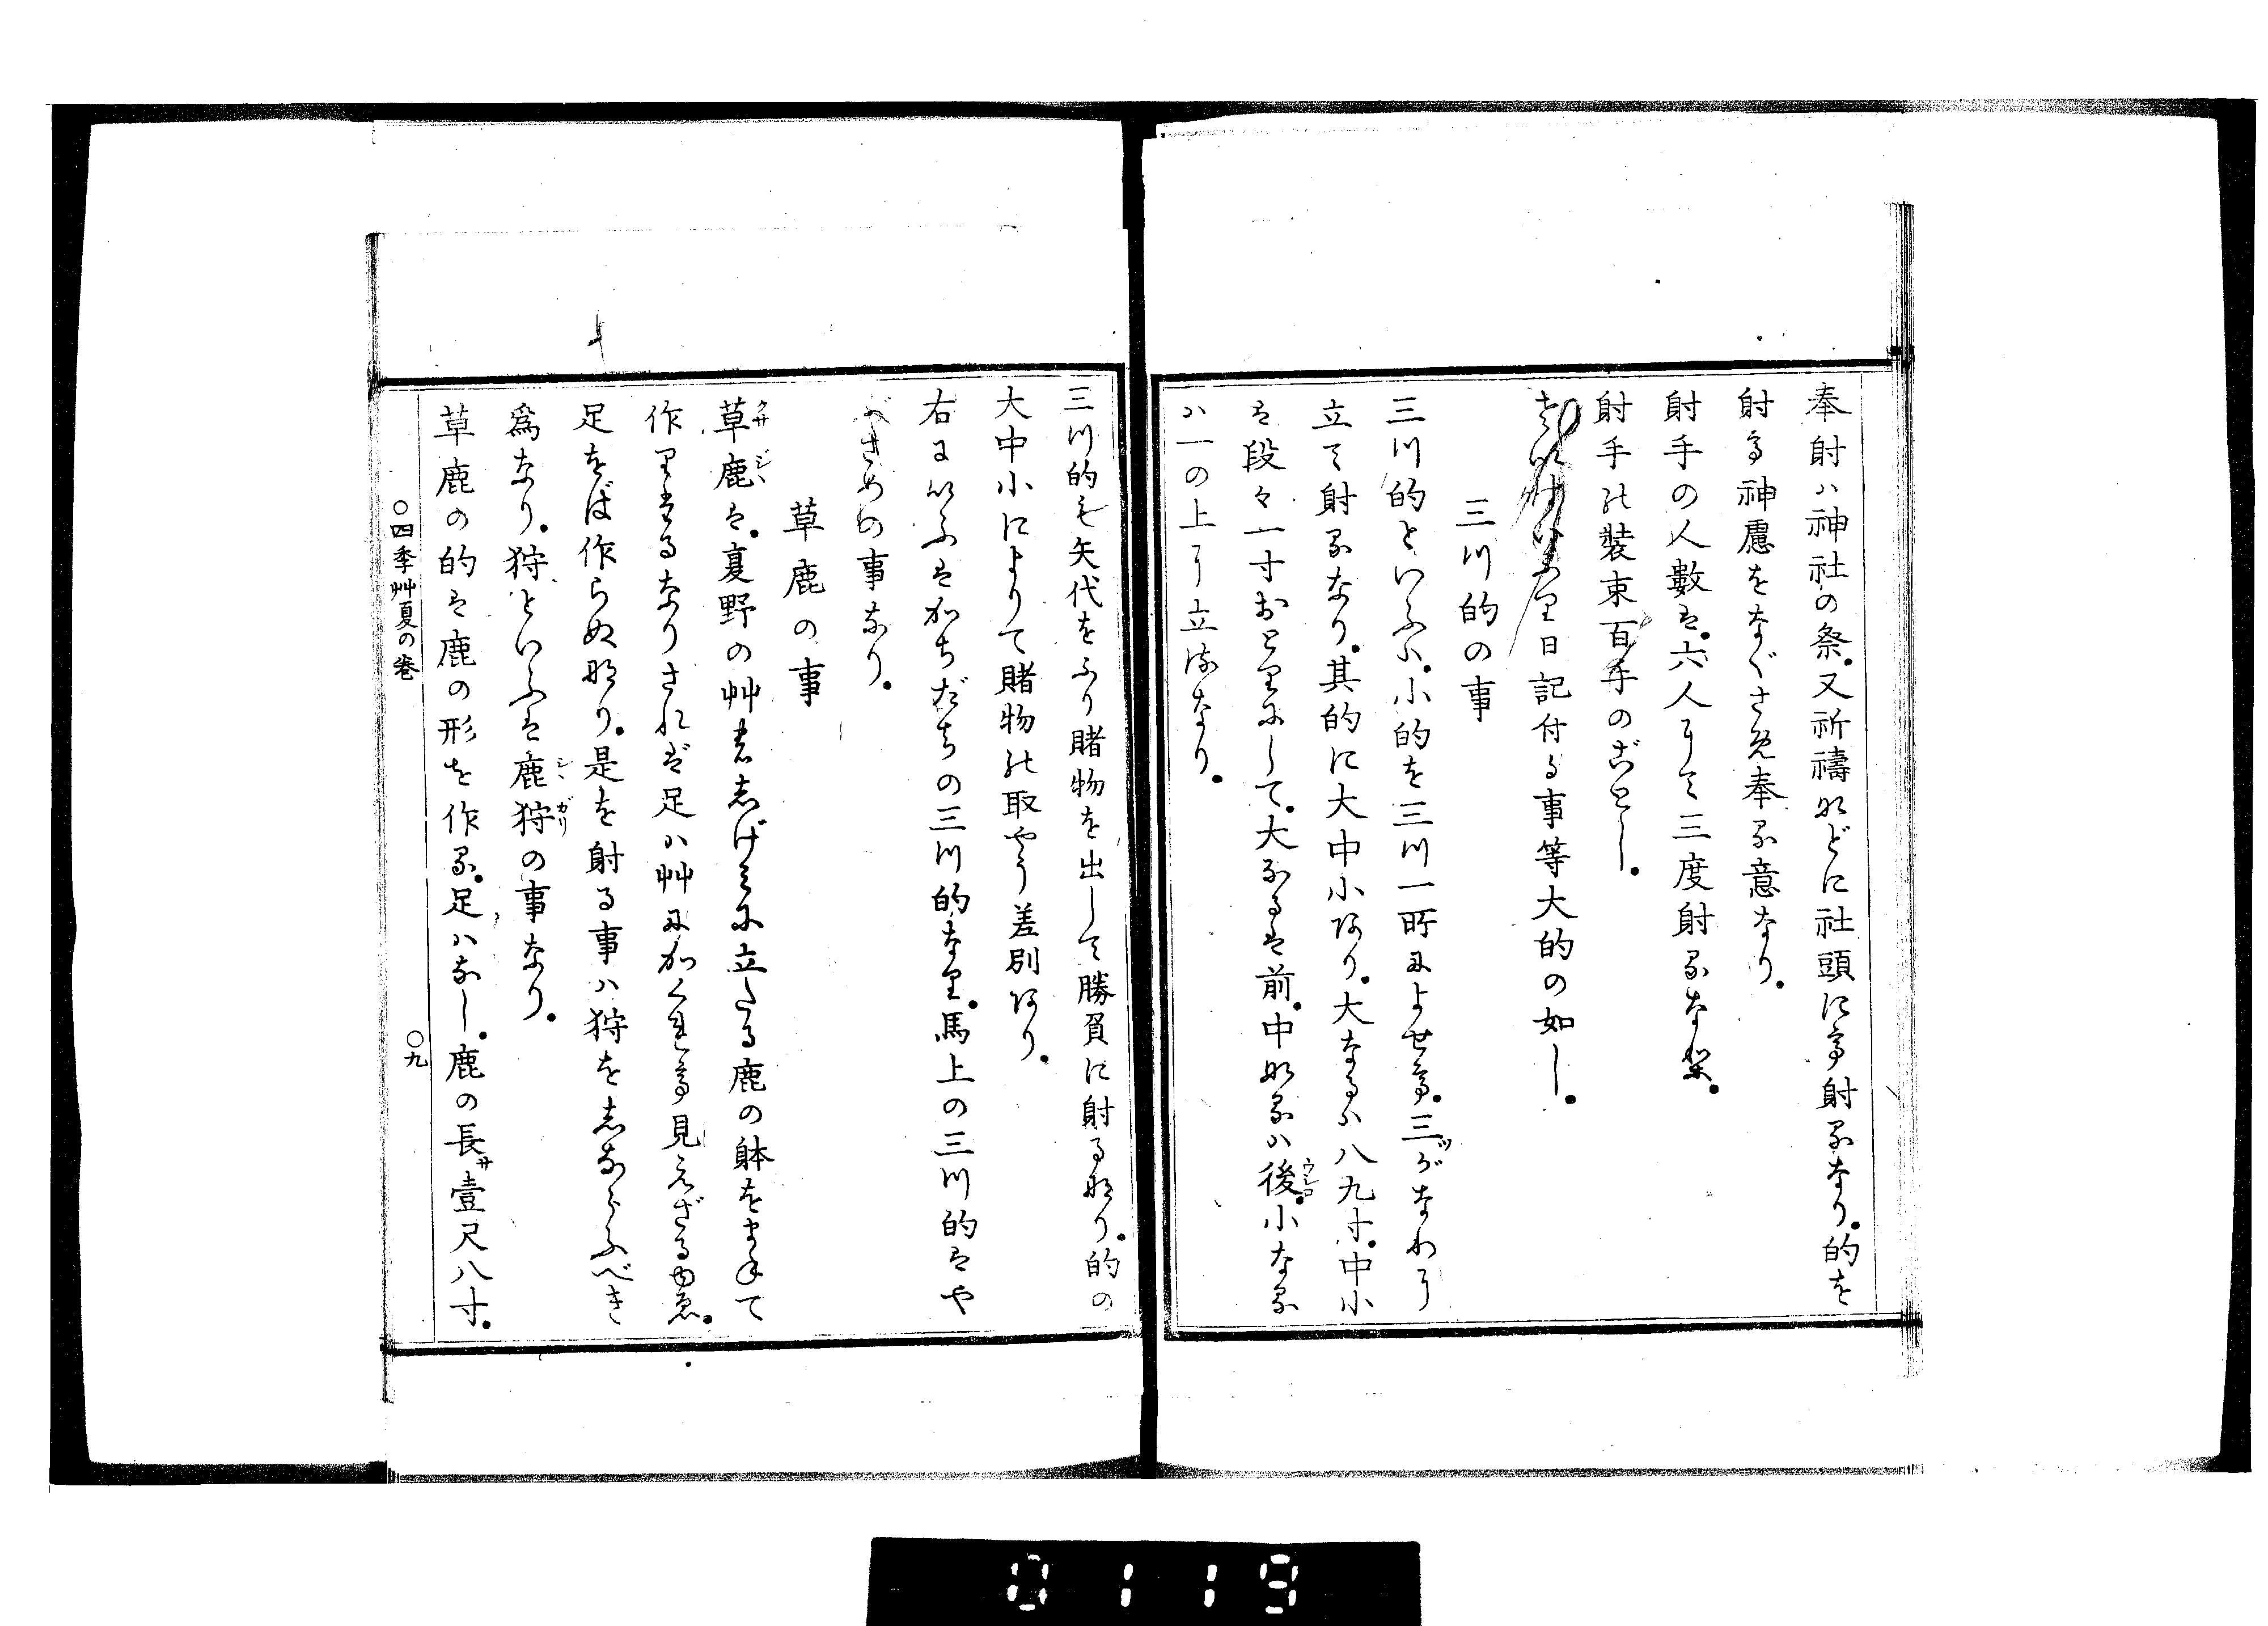 奉射ハ神社の祭。又祈禱などに社頭にて射るなり。的を
射て神慮をなぐさめ奉る意なり。
射手の人數は。六人にて三度射るなり。
射手の裝束百手のごとし。
日記付る事等大的の如し。
三川的の事
三川的といふハ。小的を三川一所によせて。三ツがなわに
立て射るなり。其的に大中小あり。大なるハ八九寸。中小
は段々一寸おとりにして。大なるは前。中なるハ後。小なる
ハ一の上に立るなり。
三川的も矢代をふり賭物を出して勝負に射る也り。的の
大中小によりて賭物の取やう差別あり。
右にいふはかちだちの三川的なり。馬上の三川的はや
ぶさめの事なり。
草鹿の事
草鹿は。夏野の艸しげみに立たる鹿の躰をまねて
作りたるなりされば足ハ艸にかくれて見えざるゆゑ。
足をば作らぬなり。是を射る事ハ狩をしならふべき
爲なり。狩といふは鹿狩の事なり。
草鹿の的は鹿の形を作る。足ハなし。鹿の長サ壹尺八寸。
○四季艸夏の巻 ○九
0119